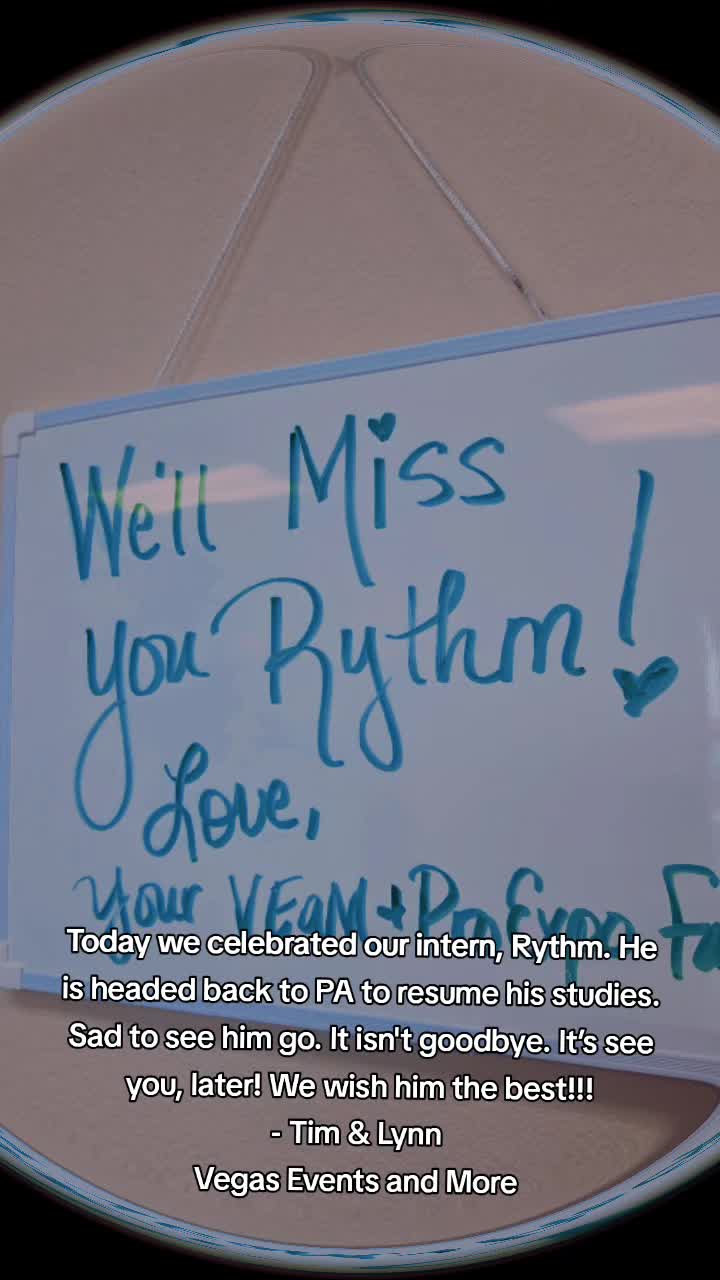 We'll Miss
you Rythm!
Love,
Your VEaM + ProExpo Fa
Today we celebrated our intern, Rythm. He
is headed back to PA to resume his studies.
Sad to see him go. It isn't goodbye. It’s see
you, later! We wish him the best!!!
- Tim & Lynn
Vegas Events and More